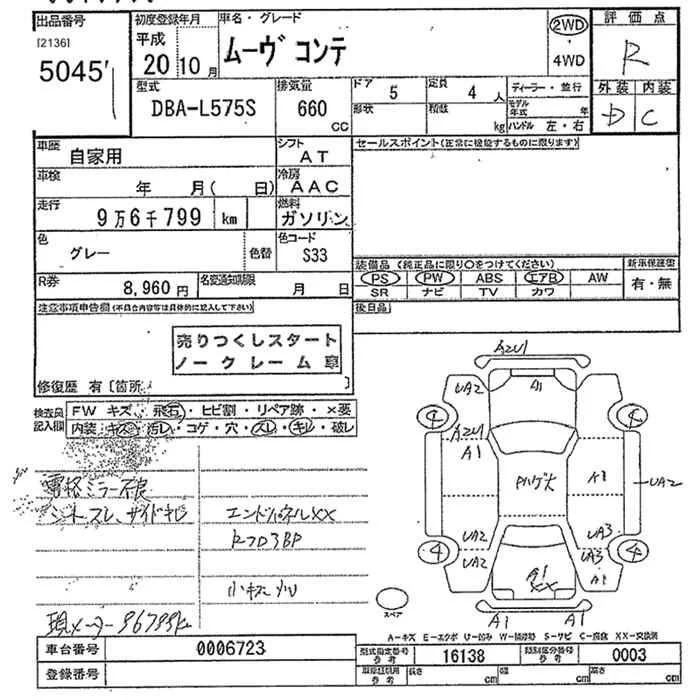 出品番号
[2136]
5045
初度登録年月
平成
20 10月
車名・グレード
ムーヴ コンテ
2WD
4WD
評価点
R
外装 内装
D C
型式
DBA-L575S
排気量
660
CC
ドア
5
形状
定員
4人
積数
kg
ディーラー・並行
モデル年式 年
ハンドル 左・右
車歴
自家用
シフト
AT
車検
年 月( 日)
冷房
AAC
走行
9万6千799 km
燃料
ガソリン
色
グレー
色替
色コード
S33
R券
8,960円
名変通知期限
月 日
セールスポイント(正常に機能するものに限ります)
装備品 (純正品に限り○をつけてください)
PS PW ABS エアB AW
SR ナビ TV カワ
新車保証書
有・無
後日品
注意事項申告欄(不具合内容等は具体的に記入して下さい)
売りつくしスタート
ノークレーム 車
修復歴 有〔箇所 〕
検査員記入欄
FW キズ・飛石・ヒビ割・リペア跡・×要
内装・キズ・汚レ・コゲ・穴・スレ・キレ・破レ
電格ミラー不良
シートスレ、サイドキレ
エンドパネルXX
小キズ
現メーター96799km
AZU1
UA2
A1
4
4
AZU1
A1
A1
UA2
UA2
UA3
UA2
UA3
4
4
A1
XX
A1
A1
A1
スペア
A-キズ E-エクボ U-凹み W-補修跡 S-サビ C-腐食 XX-交換済
車台番号
0006723
登録番号
型式指定番号
参考
16138
類別区分番号
参考
0003
長さ cm
幅 cm
高さ cm